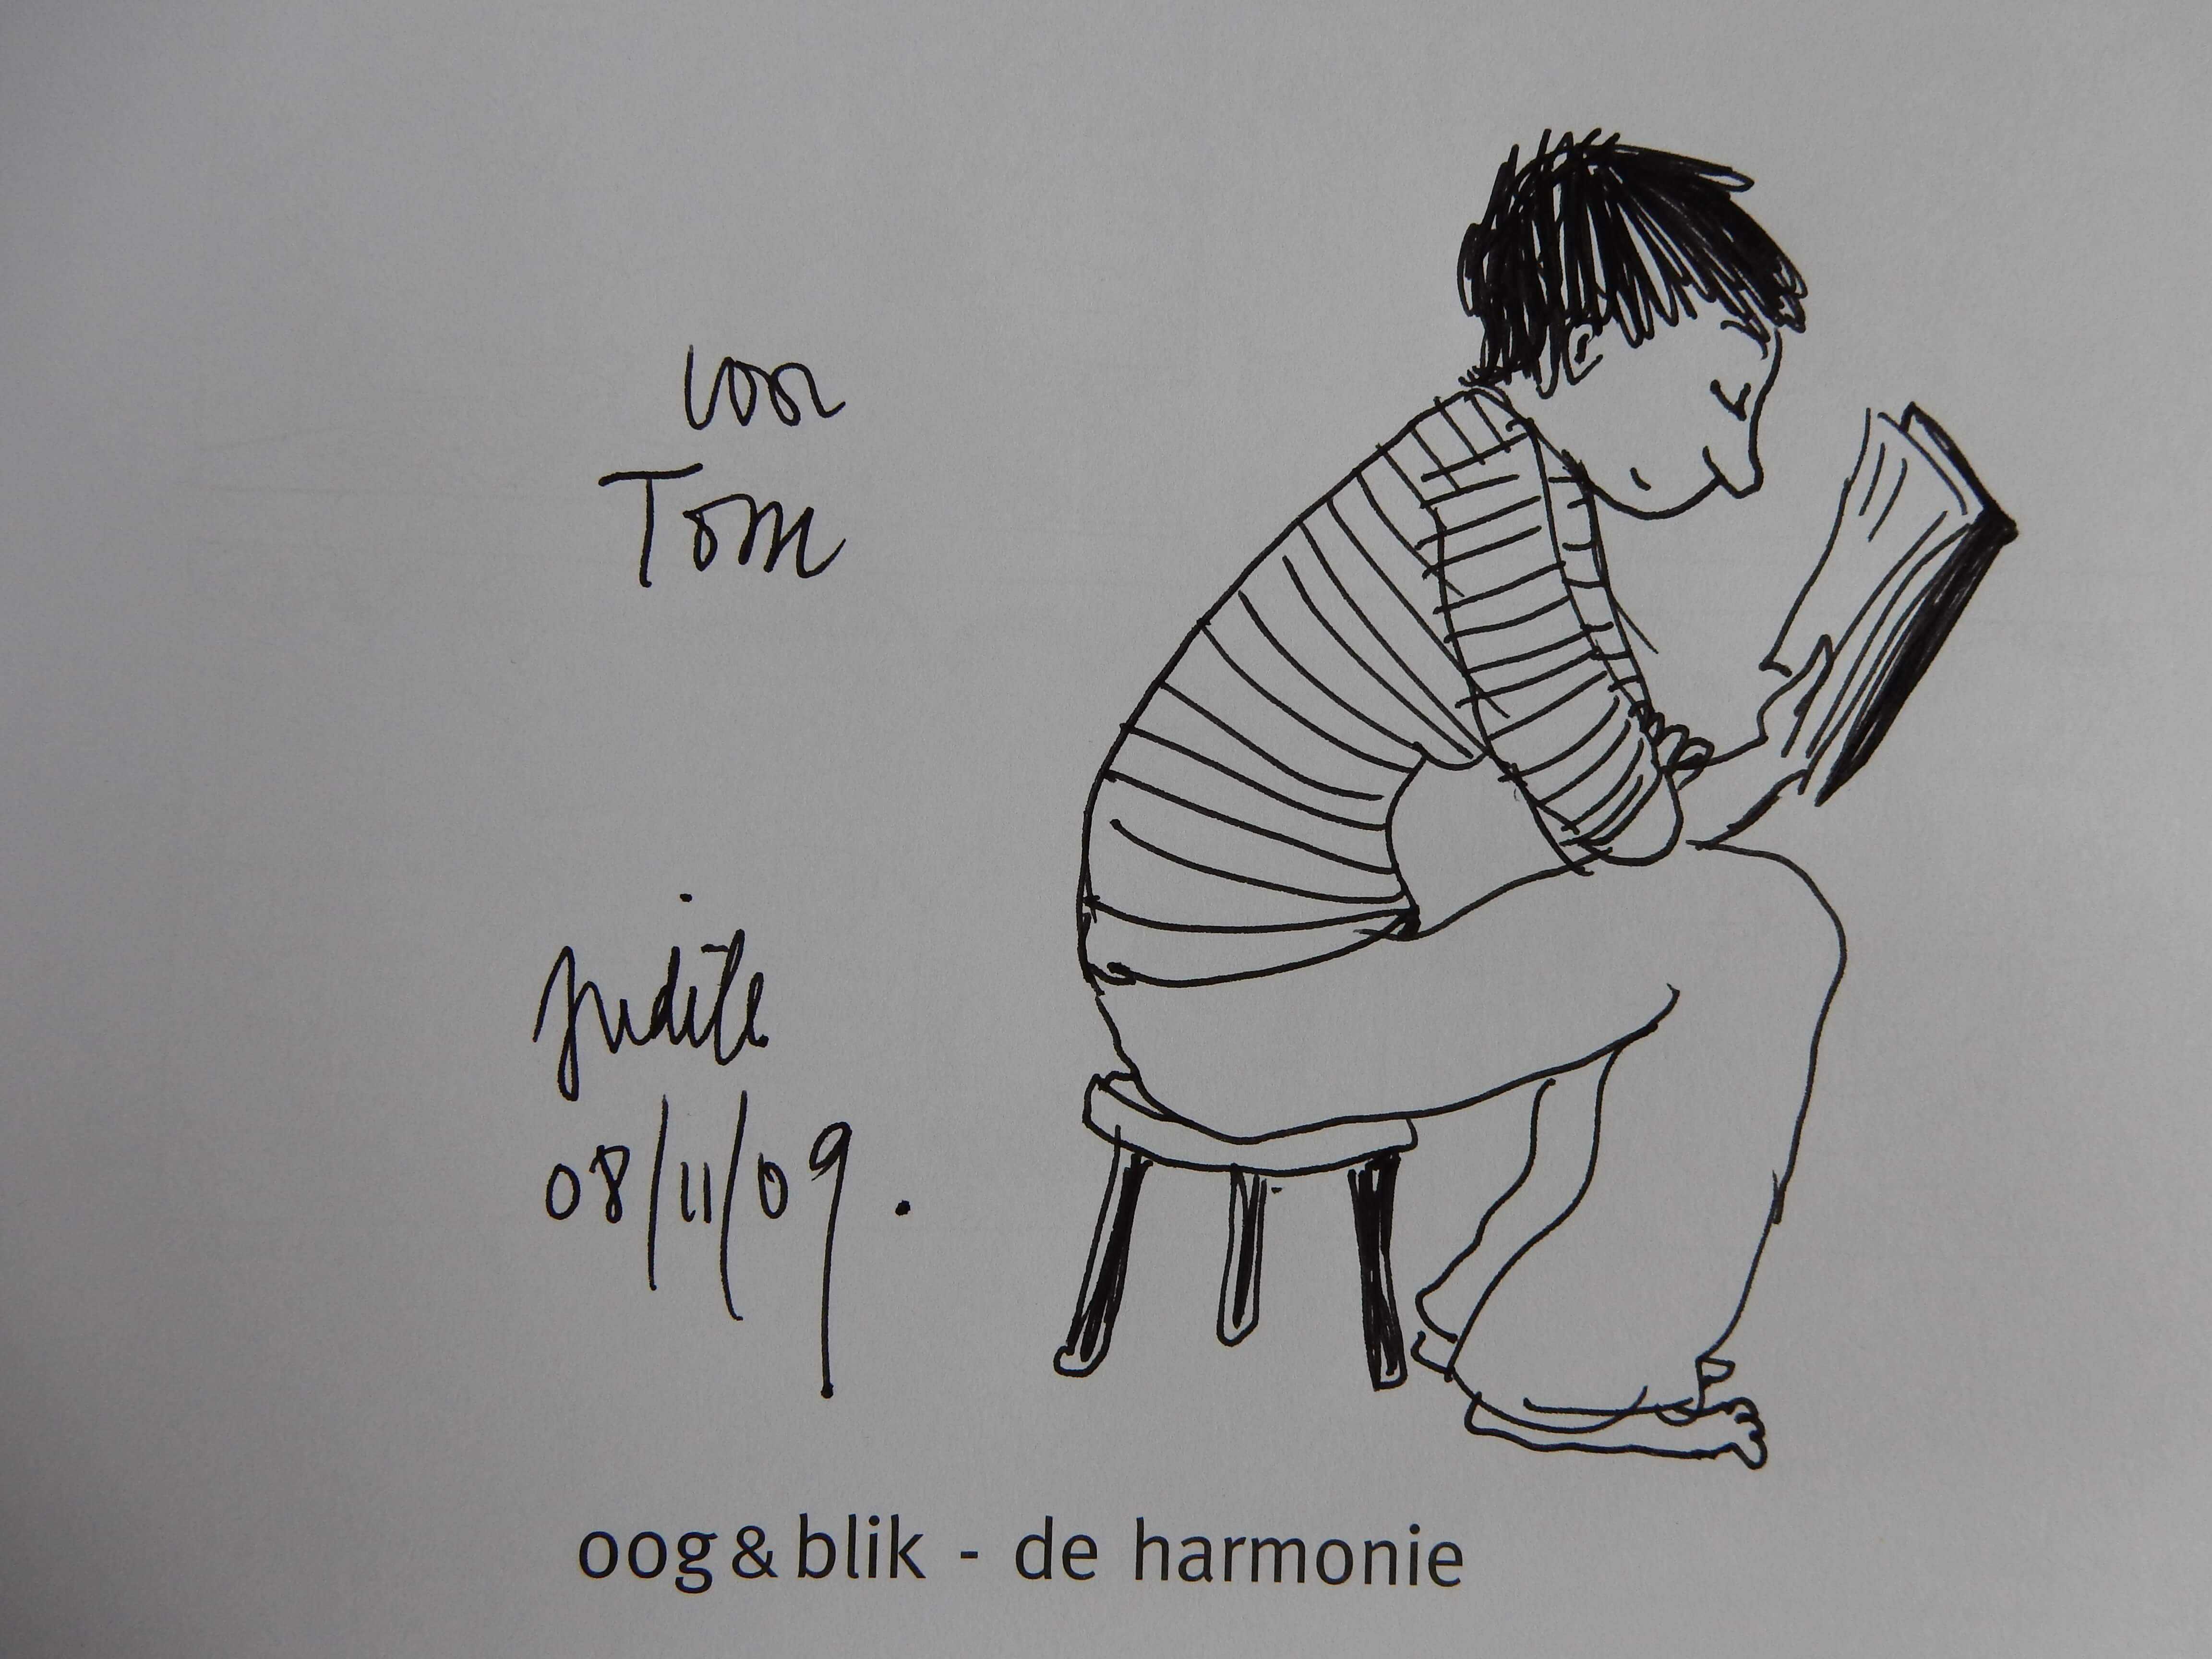 voor
Tom
Judith
08/11/09.
oog & blik - de harmonie